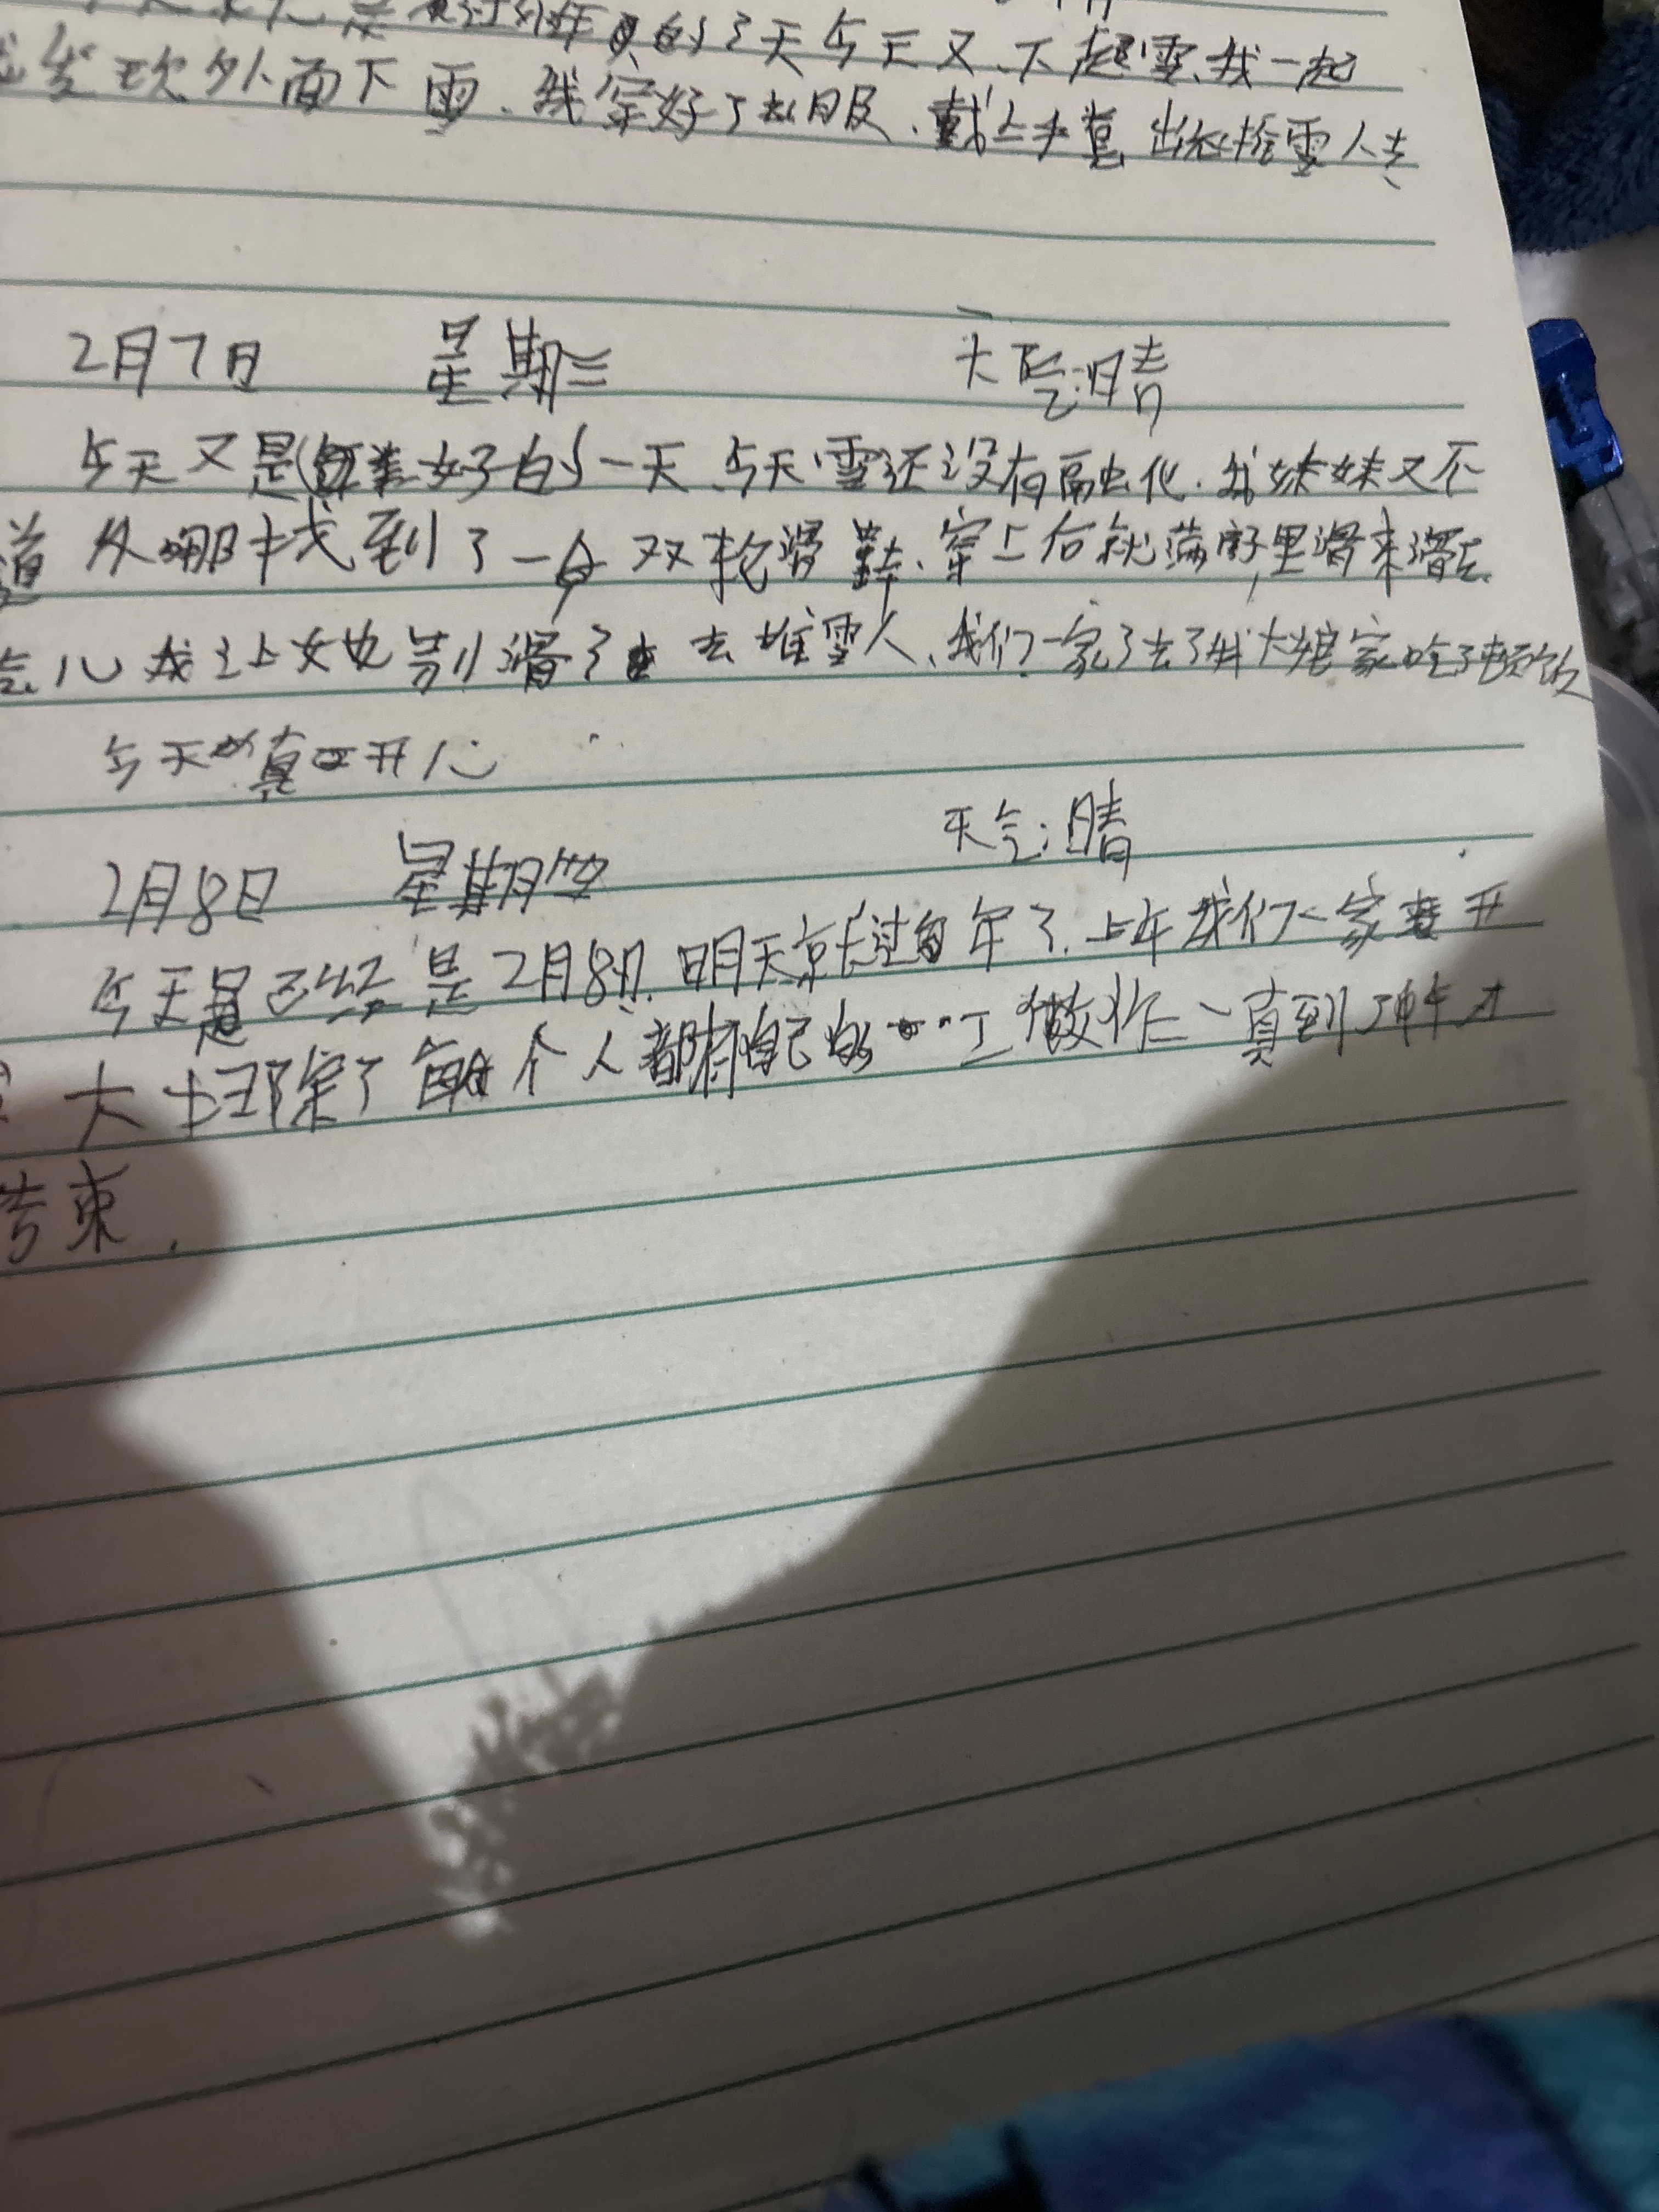 的了天今天又下起雪、我一起
发现外面下雨、我穿好了衣服、戴上手套出去堆雪人去、
2月7日 星期三 天气:晴
今天又是美好的一天、今天雪还没有融化、我妹妹又不
道从哪找到了一双轮滑鞋、穿上后就满家里滑来滑去
会儿我让她别滑了去堆雪人、我们一家子去了我大娘家吃了顿饭
今天真开心
2月8日 星期四 天气:晴
今天是已经是2月8日、明天就过年了、上午我们一家要开
大扫除了每个人都有自己的工做作一直到了中午才
结束.